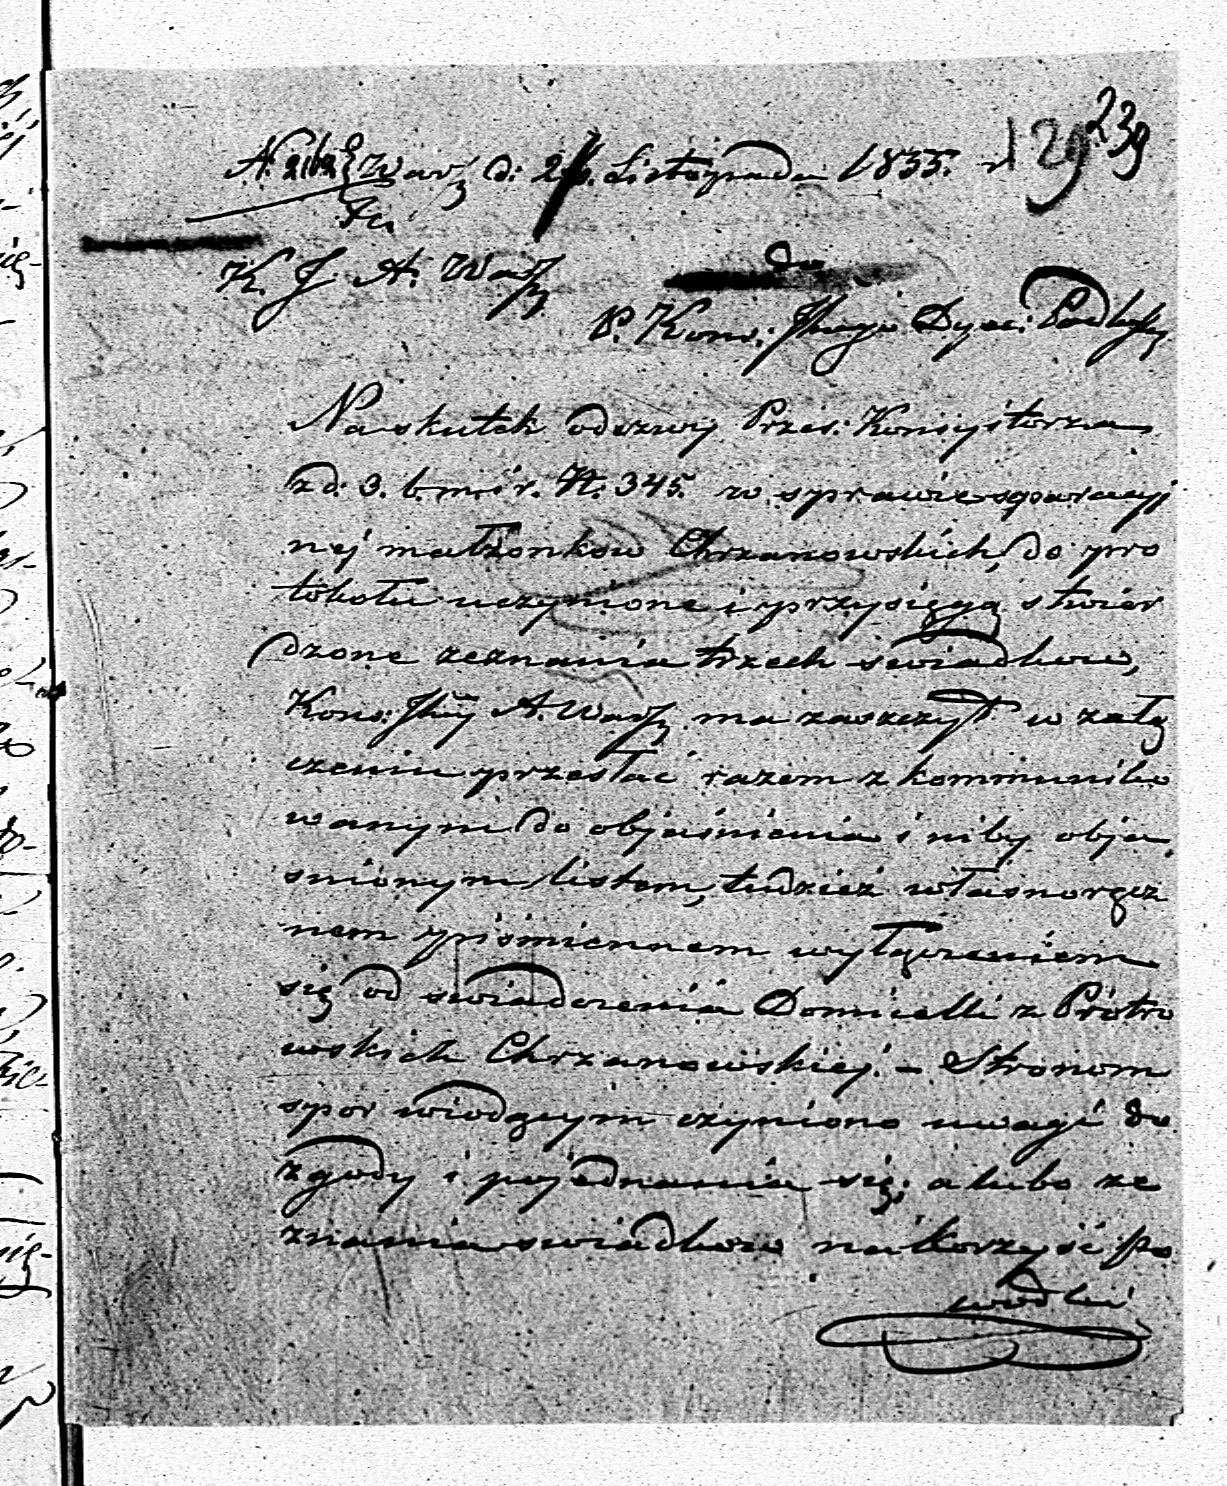 129 239
Warz d: 2 Listopada 1835. r.
K. J. A. Warsz
do
P. Kons: Jlnego Dyec: Podlaskiej
Na skutek odezwy Prześ: Konsystorza
z d: 3. b. m. i r. N. 345. w sprawie separacyj
nej małżonkow Chrzanowskich, do pro
tokołu uczynione i przysięgą stwier
dzone zeznania trzech swiadkow,
Kons: Jlny A. Warsz ma zaszczyt w załą
czeniu przesłać razem z kommuniko
wanym do objaśnienia i niby obja
snionym listem, tudzież własnoręcz
nem piśmiennem wyłączeniem
się od swiadczenia Domicelli z Piotro
wskich Chrzanowskiej. – Stronom
spor wiodącym czyniono uwagi do
zgody i pojednania się; a lubo ze
znania swiadkow na korzyść po
wodki